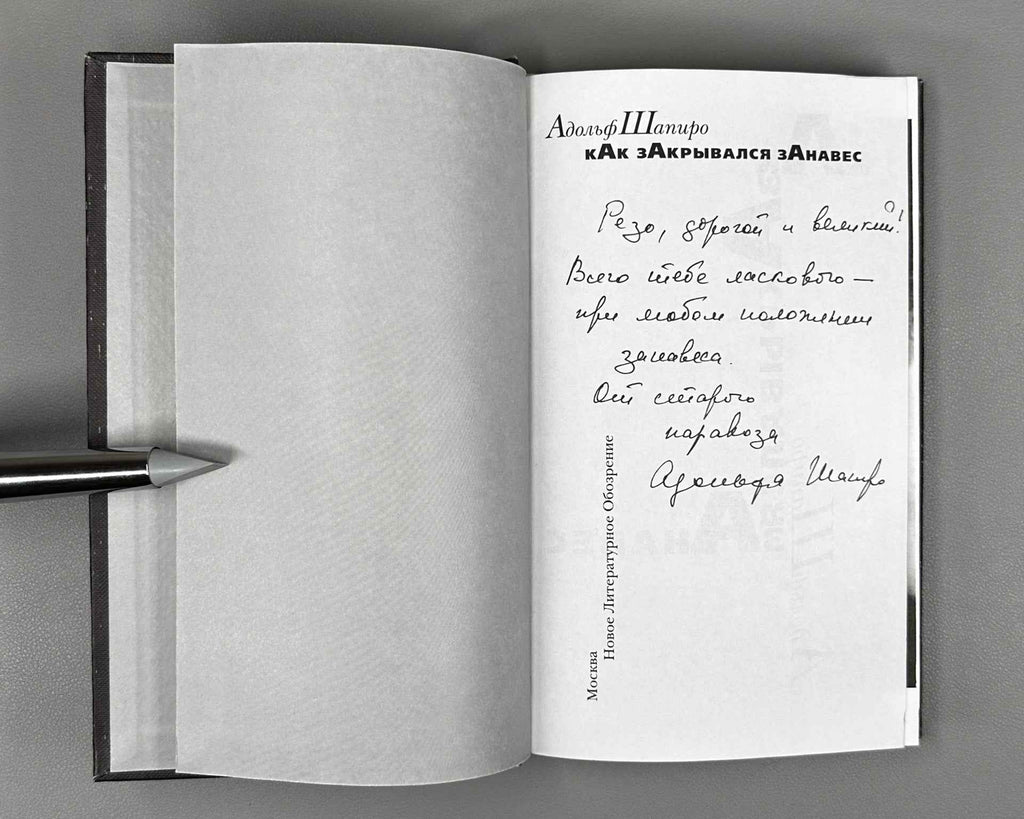 Адольф Шапиро
кАк зАкрывАлся зАнавес
Резо, дорогой и великий!
Всего тебе ласкового —
при любом положении
занавеса.
От старого
паравоза
Адольфа Шапиро
Москва
Новое Литературное Обозрение